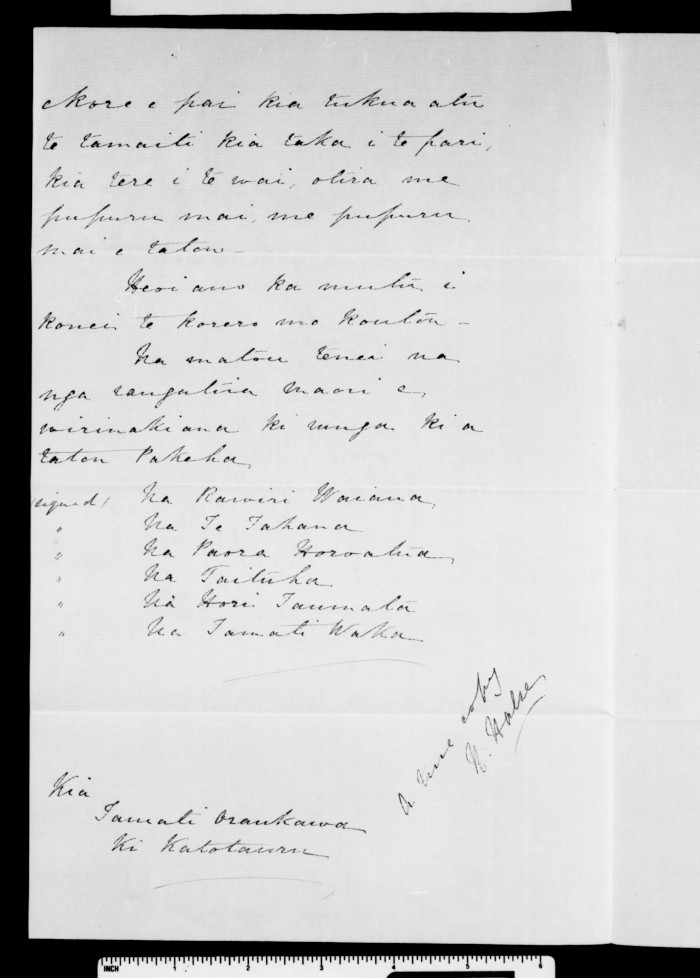 Kore e pai kia tukua atu
te tamaiti kia taka i te pari,
kia tere i te wai, otira me
pupuru mai, me pupuru
mai e tatou –
Heoi ano ka mutu i
konei te korero mo koutou –
Na matou tenei na
nga rangatira maori e
wirinakiana ki runga ki a
tatou Pakeha
(signed) Na Rawiri Waiaua
" Na Te Tahana
" Na Paora
" Na Taituha
" Na Hori Taumata
" Na Tamati Waka
a true copy
H. Halse
Kia
Tamati Oraukawa
Ki
INCH 1 2 3 4 5 6